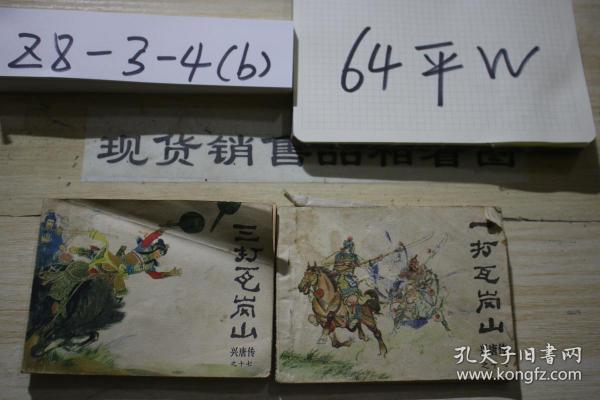 Z8-3-4(b)
64平W
现货销售品相看图
三打瓦岗山
兴唐传
之十七
一打瓦岗山
兴唐传
之十
孔夫子旧书网
www.kongfz.com